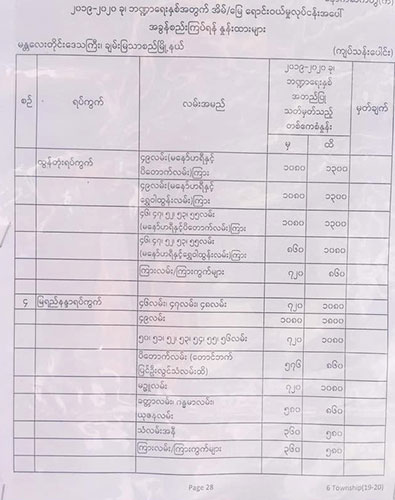 ၂၀၁၉-၂၀၂၀ ခု၊ ဘဏ္ဍာရေးနှစ်အတွက် အိမ်/မြေ ရောင်းဝယ်မှုလုပ်ငန်းအပေါ်
အခွန်စည်းကြပ်ရန် နှုန်းထားများ
မန္တလေးတိုင်းဒေသကြီး၊ ချမ်းမြသာစည်မြို့နယ်
(ကျပ်သန်းပေါင်း)
စဉ် ရပ်ကွက် လမ်းအမည် ၂၀၁၉-၂၀၂၀ ခု၊ ဘဏ္ဍာရေးနှစ် အတည်ပြု သတ်မှတ်သည့် တစ်ဧကစံနှုန်း မှတ်ချက်
မှ ထိ
ထွန်တုံးရပ်ကွက် ၄၉လမ်း(မနော်ဟရီနှင့်
ပိတောက်လမ်း)ကြား ၁၀၈၀ ၁၃၀၀
၄၉လမ်း(မနော်ဟရီနှင့်
ရွှေဝါထွန်းလမ်း)ကြား ၁၀၈၀ ၁၃၀၀
၄၆၊ ၄၇၊ ၅၂၊ ၅၃၊ ၅၅လမ်း
(မနော်ဟရီနှင့်ပိတောက်လမ်း)ကြား ၁၀၈၀ ၁၃၀၀
၄၆၊ ၄၇၊ ၅၂၊ ၅၃၊ ၅၅လမ်း
(မနော်ဟရီနှင့်ရွှေဝါထွန်းလမ်း)ကြား ၈၆၀ ၁၀၈၀
ကြားလမ်း/ကြားကွက်များ ၇၂၀ ၈၆၀
၄ မြရည်နန္ဒာရပ်ကွက် ၄၆လမ်း၊ ၄၇လမ်း၊ ၄၈လမ်း ၇၂၀ ၁၀၈၀
၄၉လမ်း ၁၀၈၀ ၁၈၀၀
၅၀၊ ၅၁၊ ၅၂၊ ၅၃၊ ၅၄၊ ၅၅၊ ၅၆လမ်း ၇၂၀ ၁၀၈၀
ပိတောက်လမ်း (တောင်ဘက်
မြင်ဦးလွင်သံလမ်းထိ) ၅၇၆ ၈၆၀
မဥ္ဇူလမ်း ၇၂၀ ၁၀၈၀
ခတ္တာလမ်း၊ ဂန္ဓမာလမ်း၊
ယုဇနလမ်း ၅၈၀ ၈၆၀
သံလမ်းအနီ ၃၆၀ ၅၈၀
ကြားလမ်း/ကြားကွက်များ ၃၆၀ ၅၈၀
Page 28
6 Township(19-20)